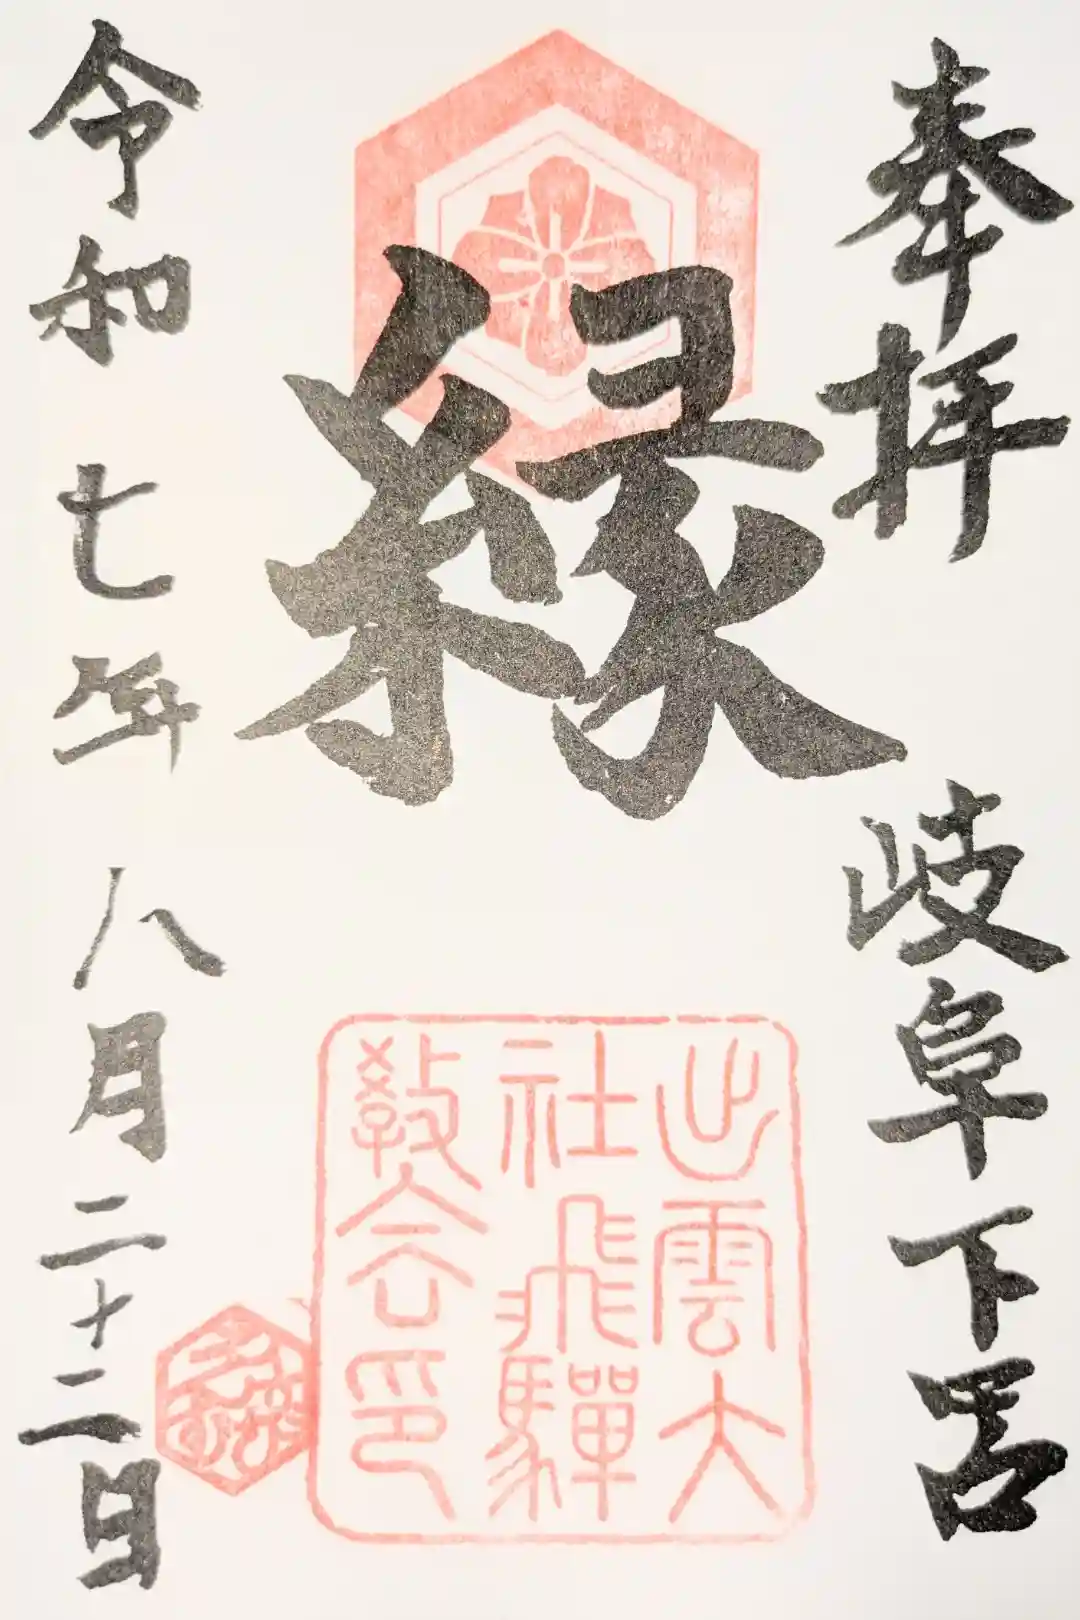 奉拝　岐阜下呂
縁
出雲大
社飛驒
教会印
令和七年八月二十二日